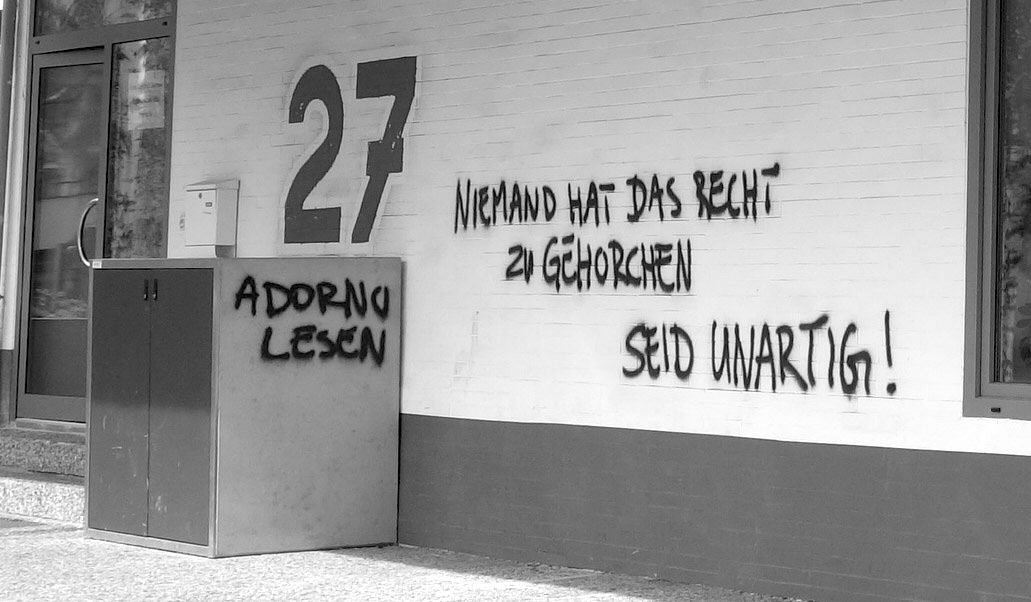 27
NIEMAND HAT DAS RECHT
ZU GEHORCHEN
SEID UNARTIG!
ADORNO
LESEN